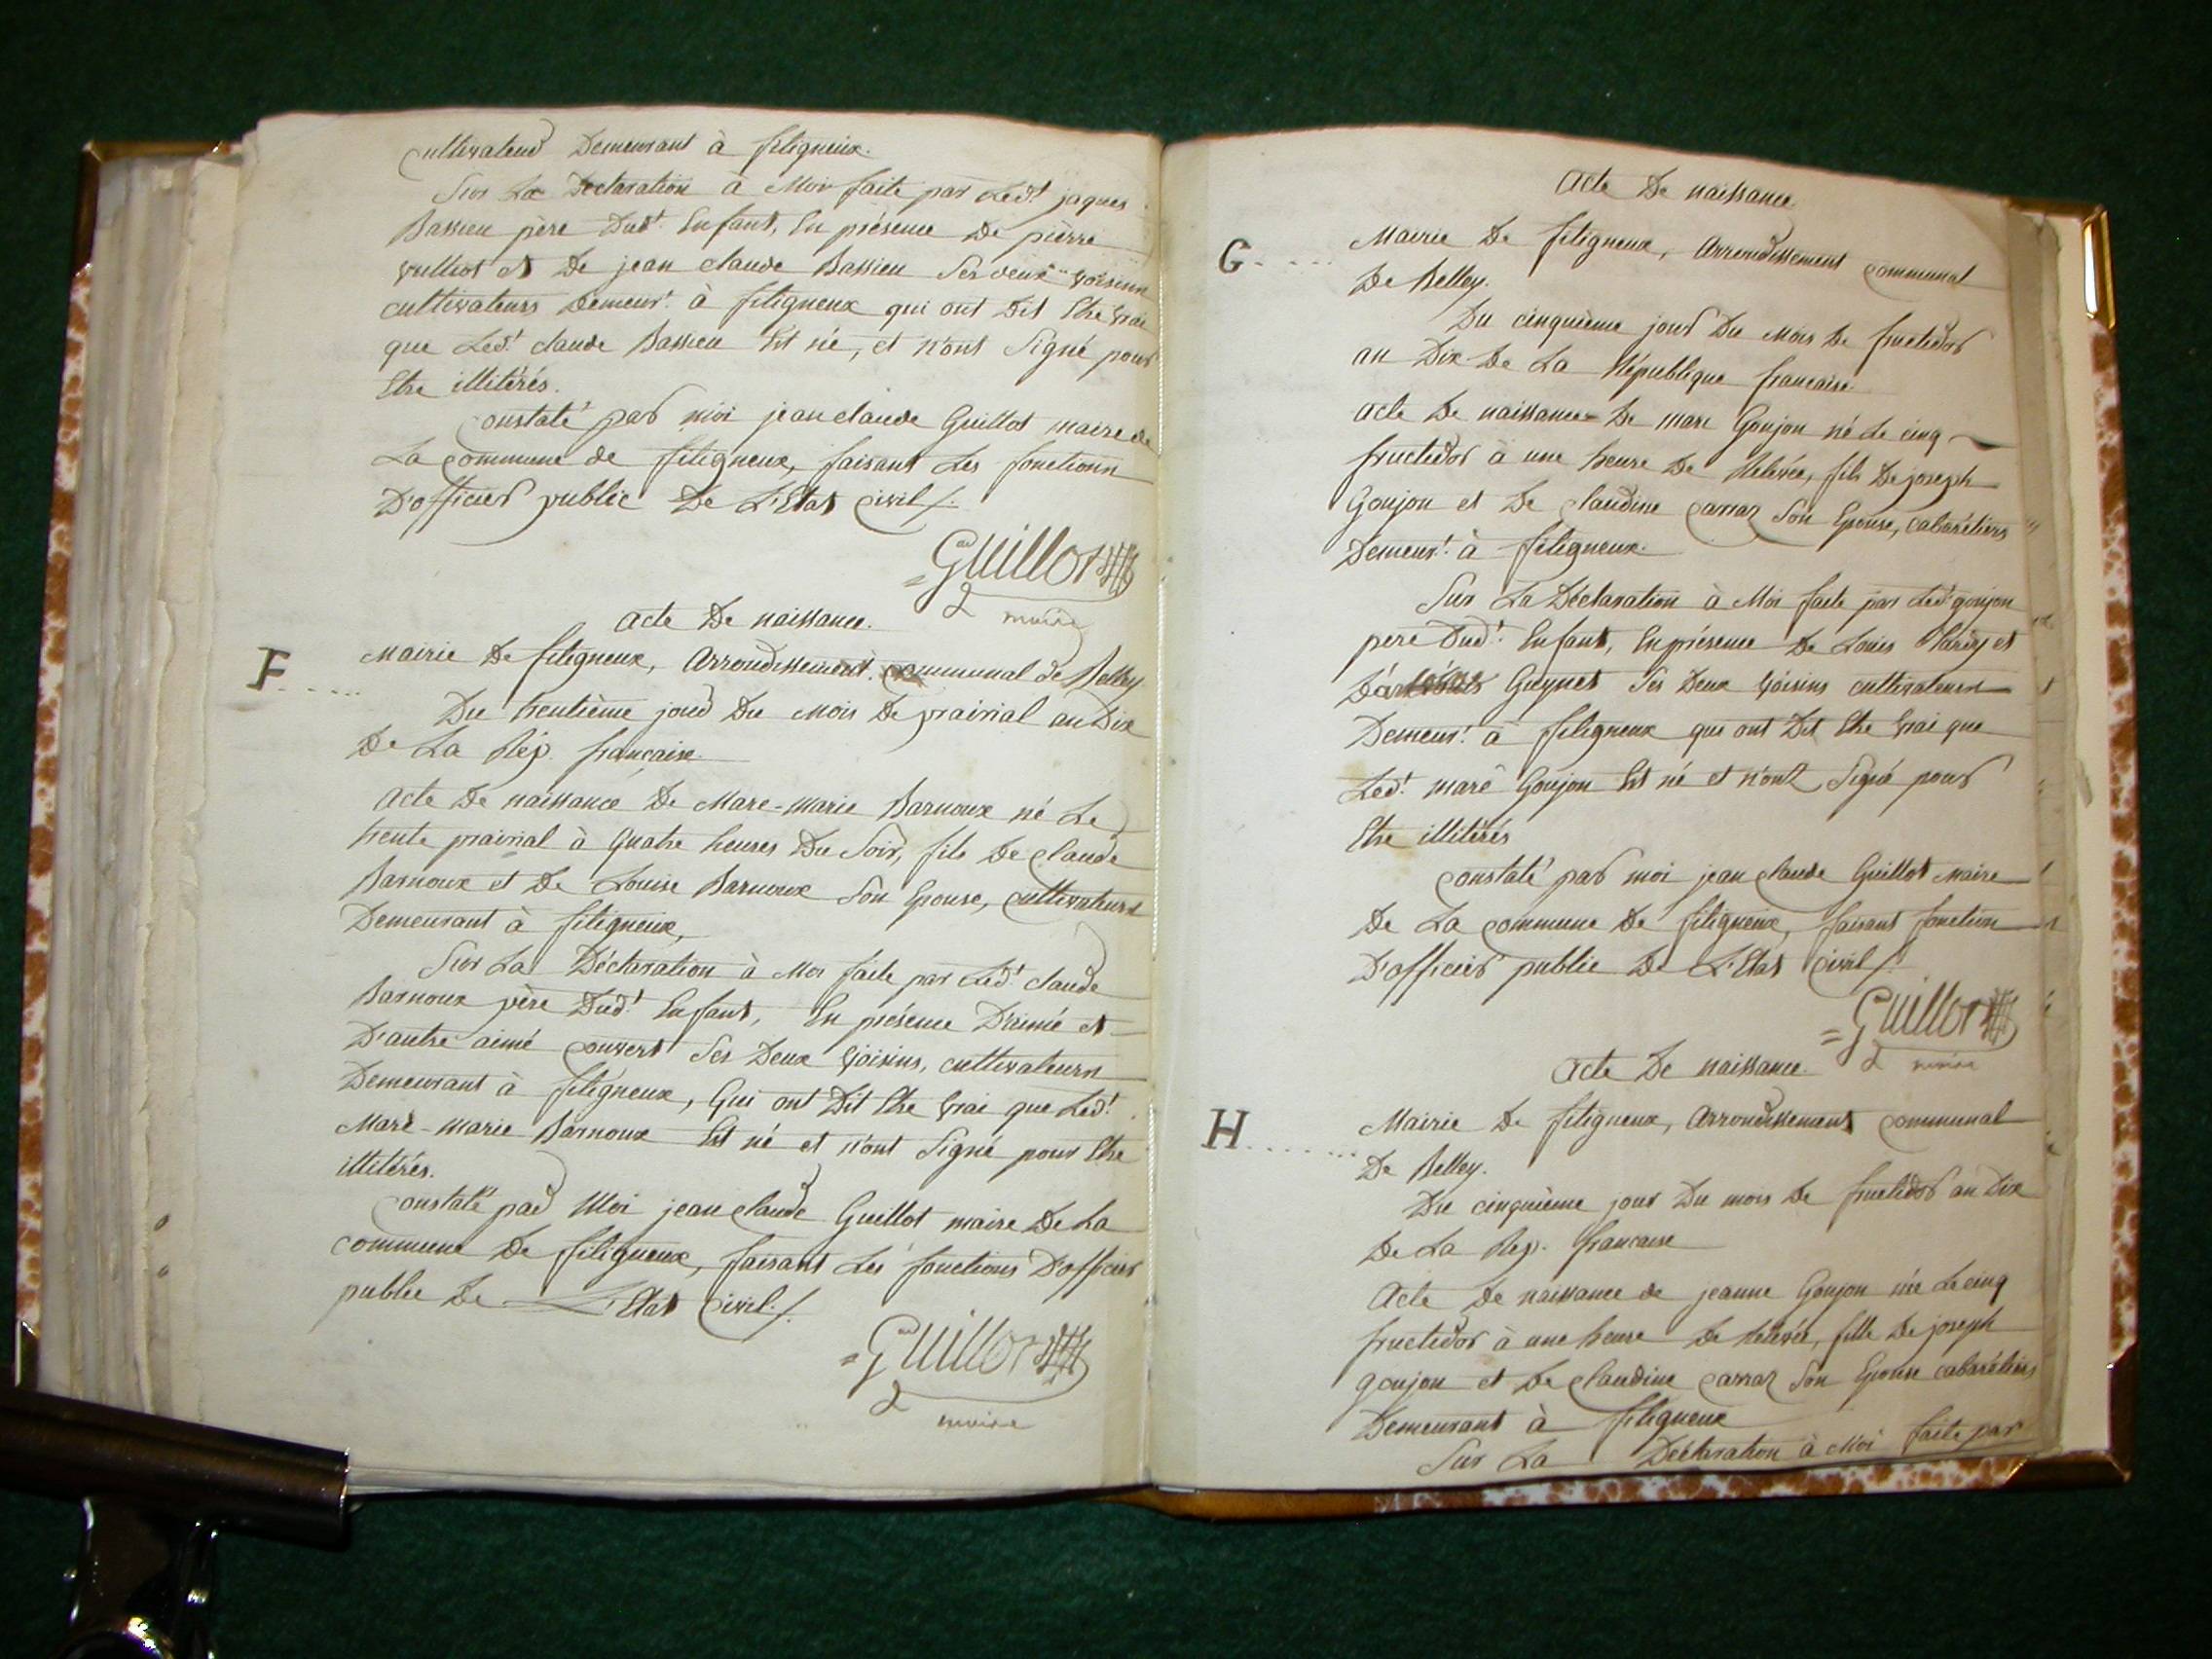 cultivateur Demeurant à filigneux.
Sur La Declaration à Moi faite par Led.t jaques
Bassieu père Dud.t Enfant, En présence De pierre
vulliot et De jean claude Bassieu Ses deux voisins
cultivateurs Demeur.t à filigneux qui ont Dit Etre vrai
que Led.t claude Bassieu Est né, et n'ont Signé pour
Etre illitérés.
constaté par moi jean claude Guillot maire de
La commune de filigneux, faisant Les fonctions
D'officier public De L'Etat civil /.
Guillot
maire
acte De naissance.
F.....
Mairie De filigneux, Arrondissement communal de Belley
Du trentième jour Du Mois De prairial an Dix
De La Rép. francaise
Acte De naissance De Marc-marie Barnoux né Le
trente prairial à Quatre heures Du Soir, fils De claude
Barnoux et De Louise Barnoux Son Epouse, cultivateurs
Demeurant à filigneux,
Sur La Déclaration à Moi faite par Led.t claude
Barnoux père Dud.t Enfant, En présence D'aimé et
D'autre aimé convert Ses Deux voisins, cultivateurs
Demeurant à filigneux, Qui ont Dit Etre vrai que Led.t
Marc-marie Barnoux Est né et n'ont Signé pour Etre
illitérés.
constaté par Moi jean claude Guillot maire De La
commune De filigneux, faisant Les fonctions D'officier
public De L'Etat civil /.
Guillot
maire
Acte De naissance
G.....
Mairie De filigneux, Arrondissement communal
De Belley.
Du cinquième jour Du Mois De fructidor
an Dix De La République francaise
Acte De naissance De marc Goujon né Le cinq
fructidor à une heure De Relevée, fils De joseph
Goujon et De claudine carraz Son Epouse, cabarétiers
Demeur.t à filigneux.
Sur La Déclaration à Moi faite par Led.t goujon
pere Dud.t Enfant, En présence De Louis et
Guynet Ses Deux voisins cultivateurs
Demeur.t à filigneux qui ont Dit Etre vrai que
Led.t marc Goujon Est né et n'ont Signé pour
Etre illitérés
constaté par moi jean claude Guillot Maire
De La commune De filigneux, faisant fonction
D'officier public De L'Etat civil /.
Guillot
maire
Acte De naissance.
H.......
Mairie De filigneux, Arrondissement communal
De Belley.
Du cinquième jour Du mois De fructidor an Dix
De La Rép. francaise
Acte De naissance de jeanne Goujon née Le cinq
fructidor à une heure De relevée, fille De joseph
goujon et De claudine carraz Son Epouse cabarétiers
Demeurant à filigneux
Sur La Déclaration à Moi faite par